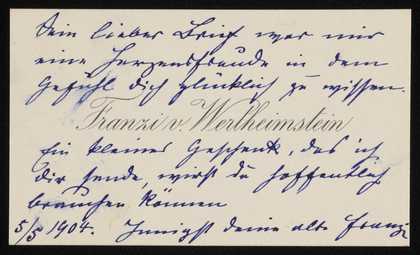 Dein lieber Brief war mir
eine Herzensfreude in dem
Gefühl dich glücklich zu wissen.
Franzi v. Wertheimstein
Ein kleines Geschenk, das ich
dir sende, wirst du hoffentlich
brauchen können
5/5 1904. Innigst deine alte Franzi